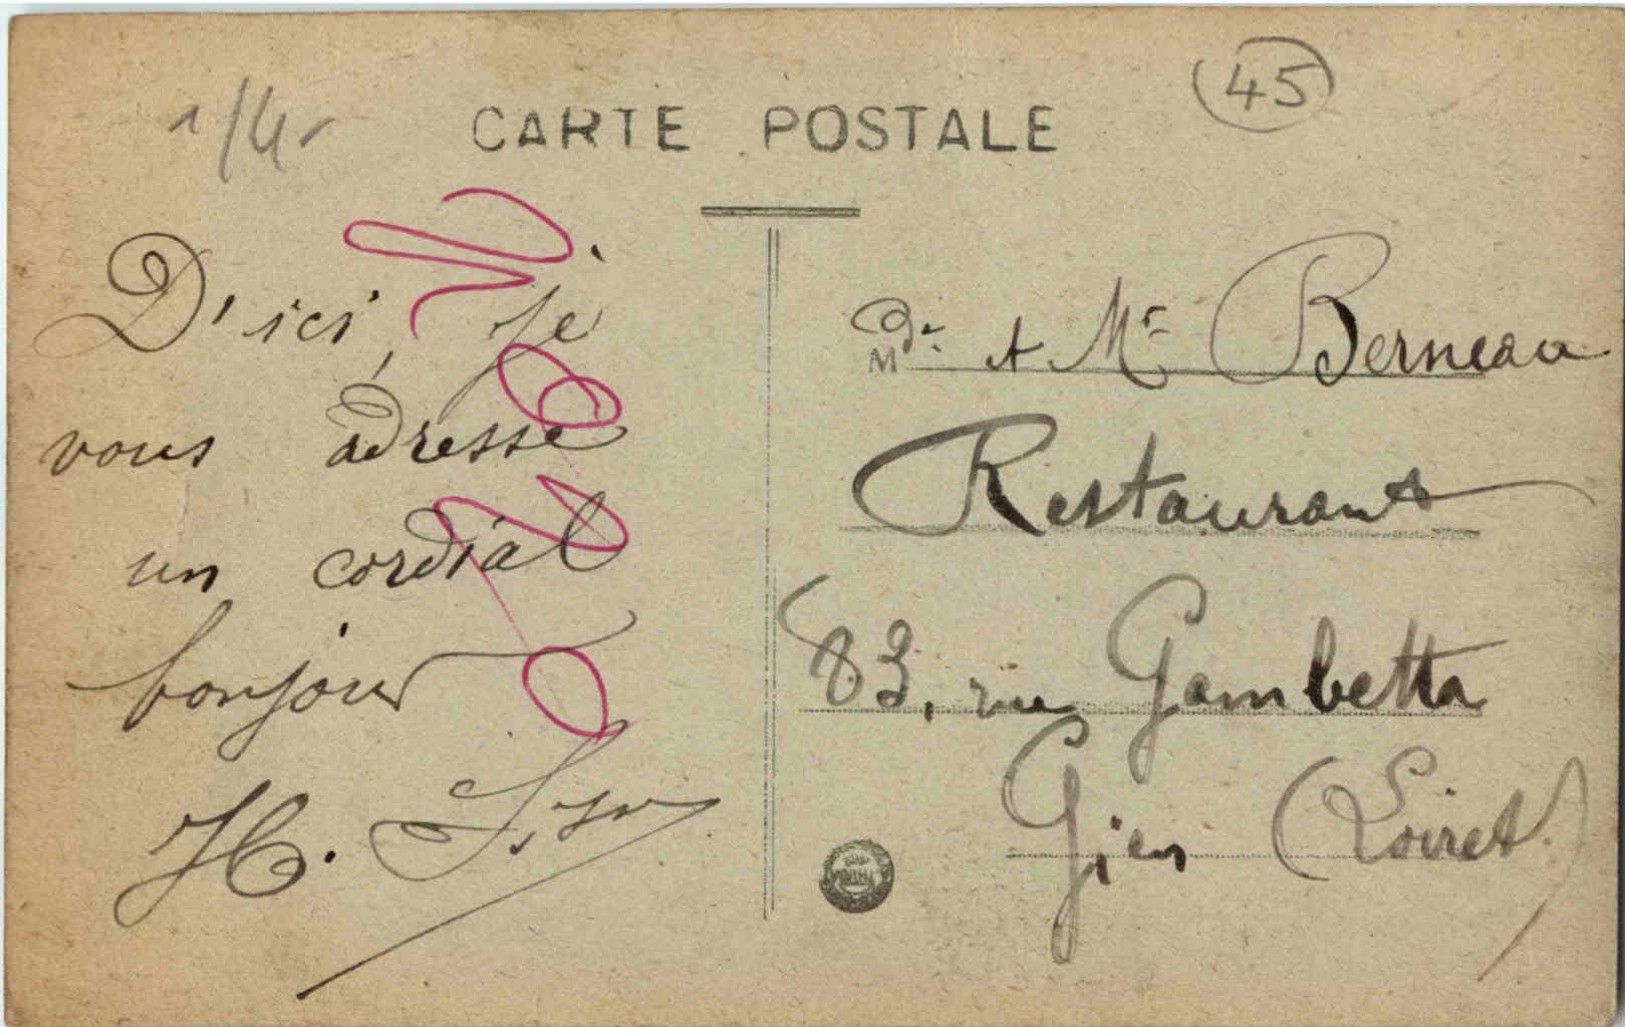 CARTE POSTALE
45
D'ici, je
vous adresse
un cordial
bonjour
H.
Mde et Mr Berneau
Restaurant
83, rue Gambetta
Gien (Loiret)